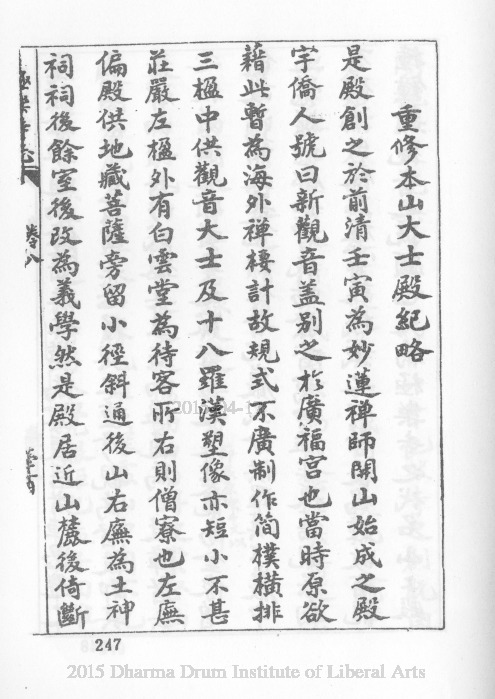 重修本山大士殿紀略
是殿創之於前清壬寅為妙蓮禪師開山始成之殿
宇僑人號曰新觀音盖別之於廣福宮也當時原欲
藉此暫為海外禅棲計故規式不廣制作简樸橫排
三楹中供觀音大士及十八羅漢塑像亦短小不甚
莊嚴左楹外有白雲堂為待客所右則僧寮也左廡
偏殿供地藏菩薩旁留小徑斜通後山右廡為土神
祠祠後餘室後改為義學然是殿居近山麓後倚斷
卷八
247
2015 Dharma Drum Institute of Liberal Arts